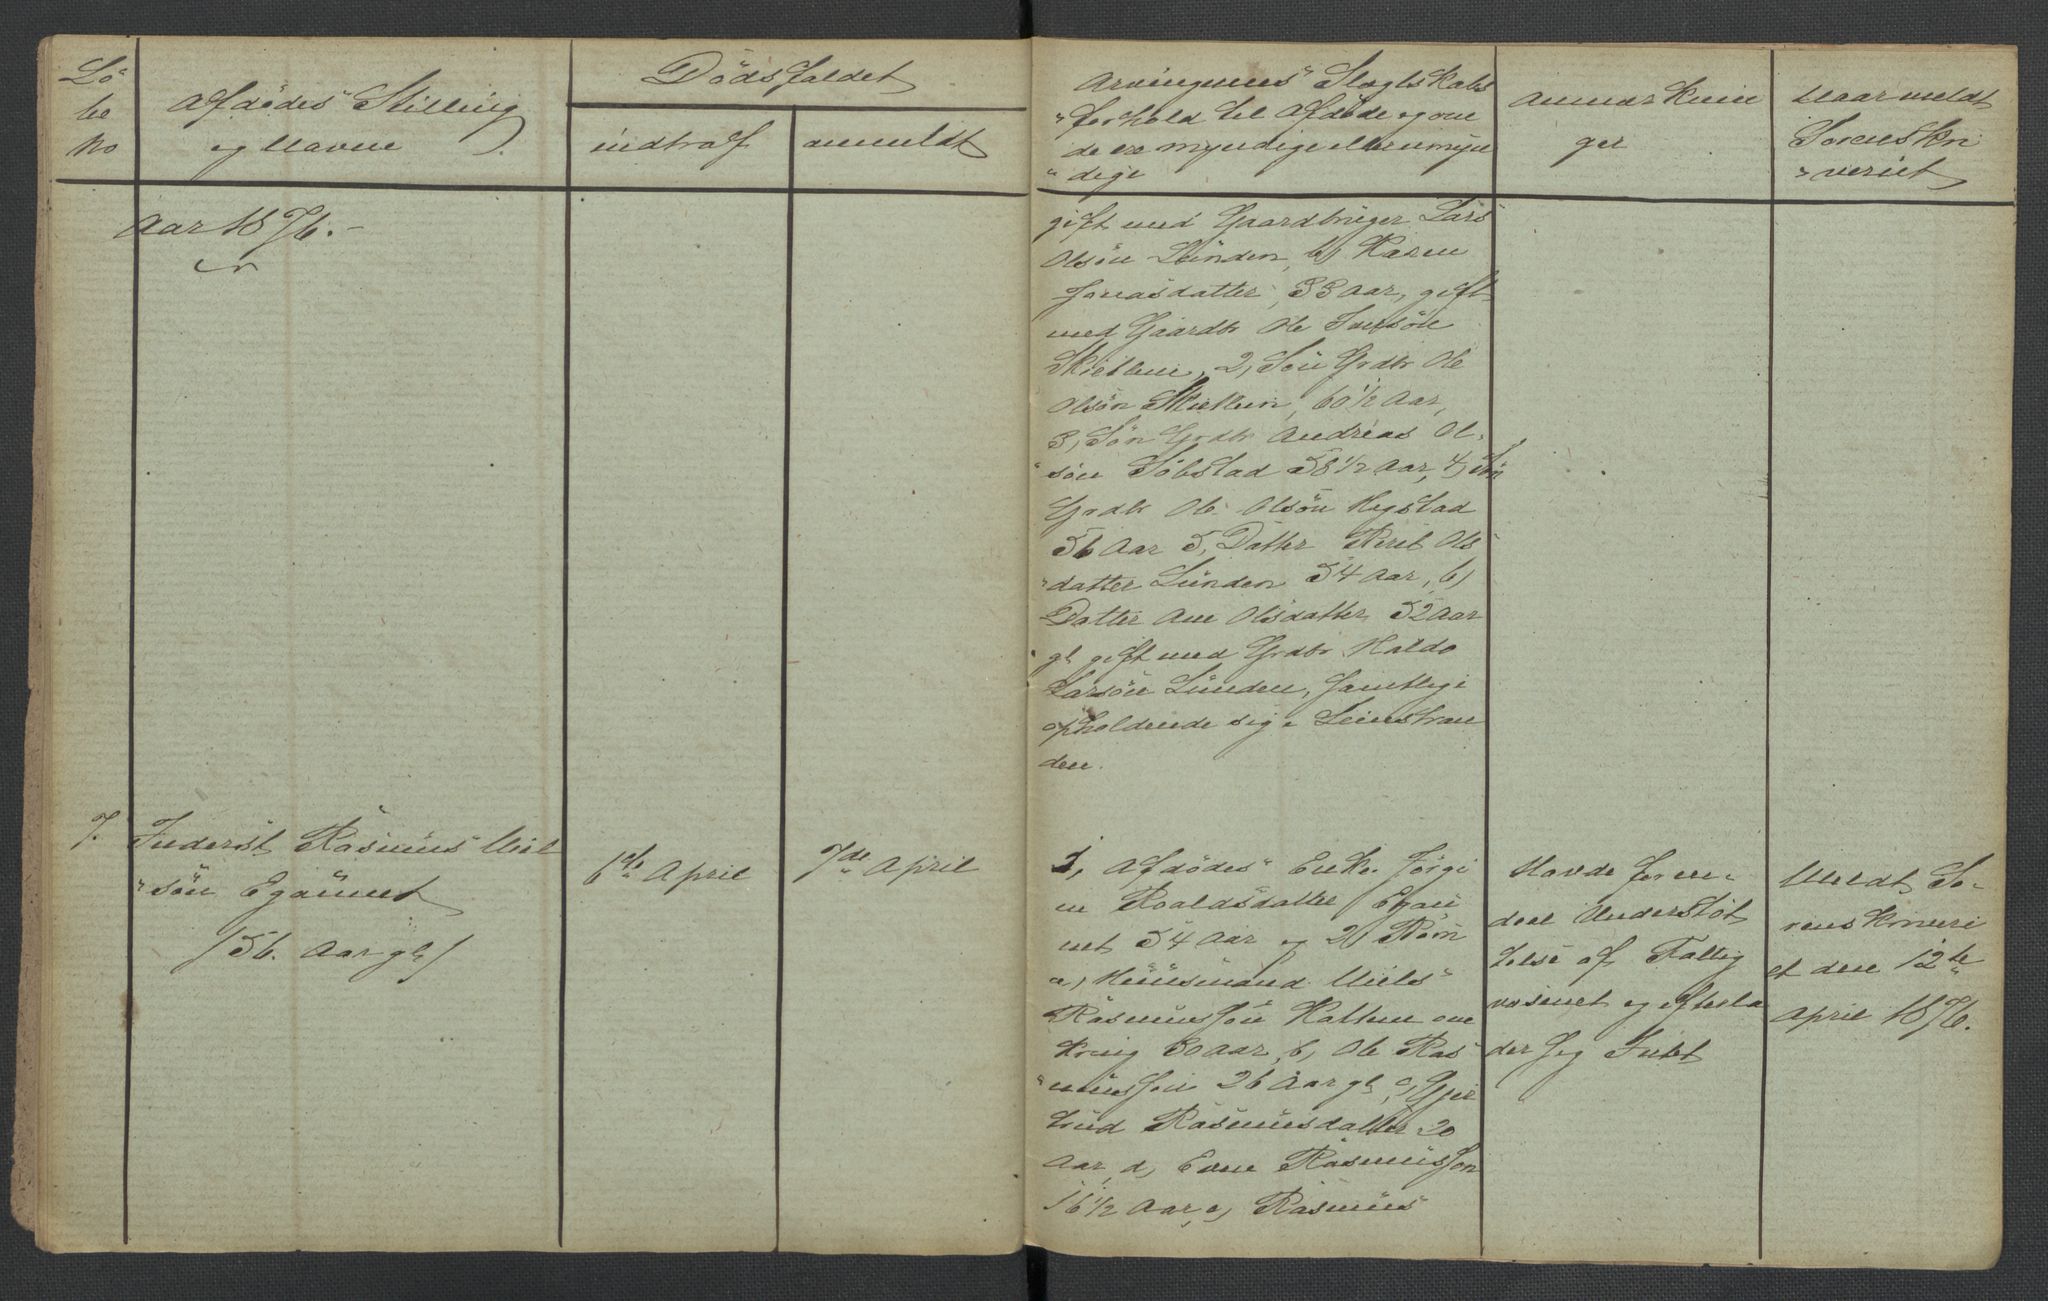 Lö
be
No
Afdödes Stilling
og Navne
Dödsfaldet
indtraf
anmeldt
Arvingernes Slægtskabs
forhold til Afdöde og om
de ere myndige eller umyn
dige
Anmærknin
ger
Naar meldt
Sorenskri
veriet
Aar 1876.
gift med Gaardbruger Lars
Olsön Lunden, b) Karen
Jonasdatter, 33 Aar, gift
med Gaardbr Ole
2, Sön Grdbr Ole
Olsön 60 1/2 Aar,
3, Sön Grdbr Andreas Ol-
sön Söbstad 58 1/2 Aar, 4, Sön
Grdbr Ole Olsön Hegstad
56 Aar 5, Datter Berit Ols
datter Lunden 54 Aar, 6)
Datter Ane Olsdatter 52 Aar
gl gift med Grdbr Haldo
Larsön Lunden, samtlige
opholdende sig i Leinstran
den.
7. Inderst Rasmus Niel
sön Egännet
/56. Aar gl/
6te April
7de April
1, Afdödes Enke Jörgi
ne Roaldsdatter Egän
net 54 Aar og 2) Börn
a, Huusmand Niels
Rasmussön Hallem om
kring 30 Aar, b, Ole Ras
mussön 26 Aar gl, c, Gjer
trud Rasmusdatter 20
Aar, d, Even Rasmussön
16 1/2 Aar, e, Rasmus
Havde for en
deel Understöt
telse af Fattig
væsenet og efterla
der sig Intet
Meldt So-
renskriveri
et den 12te
April 1876.